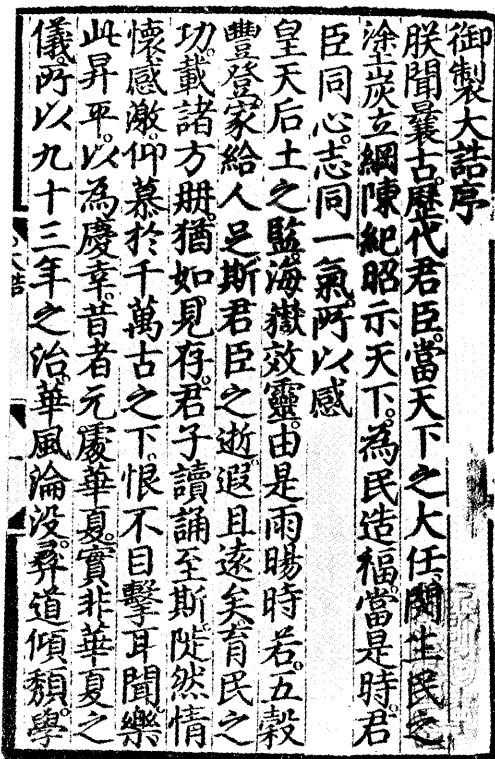 御製大誥序
朕聞曩古歷代君臣當天下之大任閔生民之
塗炭立綱陳紀昭示天下為民造福當是時君
臣同心志同一氣所以感
皇天后土之監海嶽效靈由是雨暘時若五穀
豐登家給人足斯君臣之逝遐且遠矣育民之
功載諸方冊猶如見存君子讀誦至斯陡然情
懷感激仰慕於千萬古之下恨不目擊耳聞樂
此昇平以為慶幸昔者元處華夏實非華夏之
儀所以九十三年之治華風淪没彛道傾頽學
大誥
一